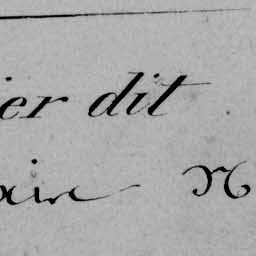 ier dit
ain N